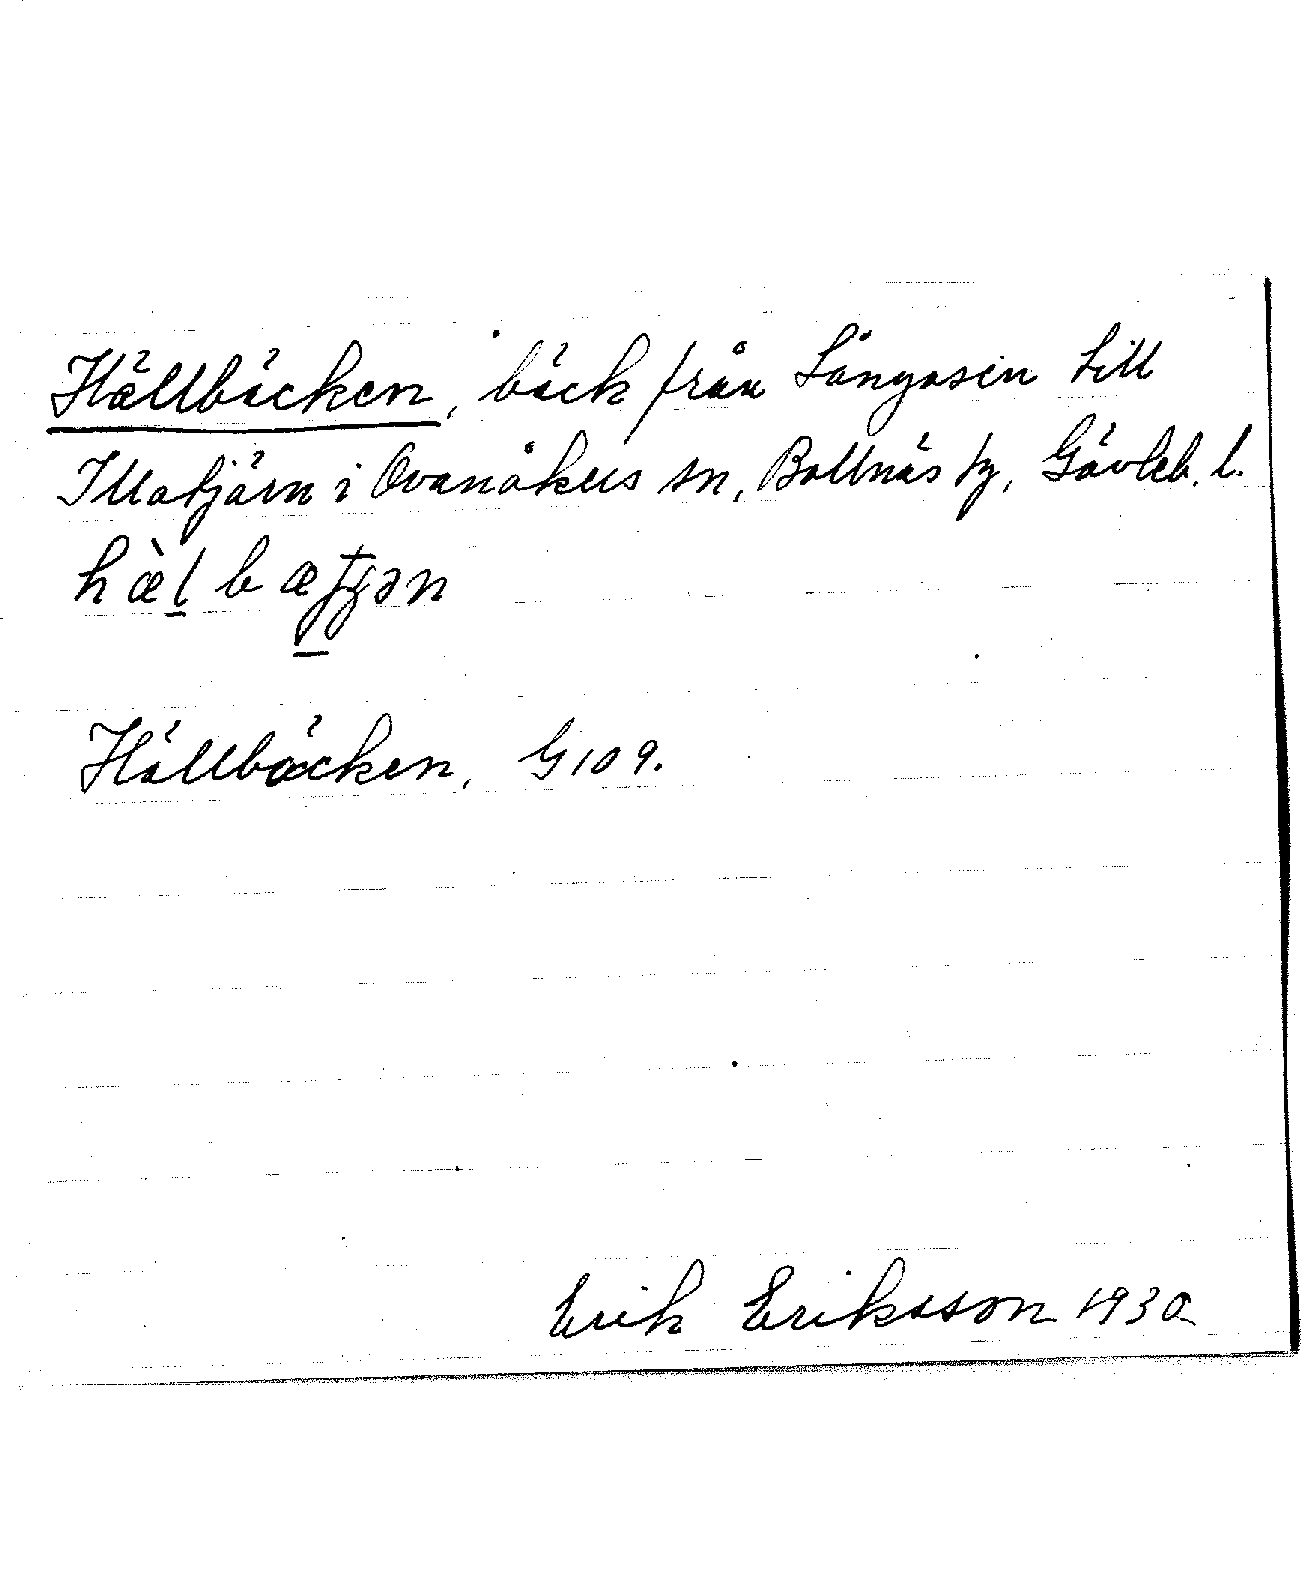 Hällbäcken, bäck från Långasen till
Illatjärn i Ovanåkers sn, Bollnäs tg, Gävleb. l.
hæ̀l̲bæ
Hällbäcken, G 109.
Erik Eriksson 1930